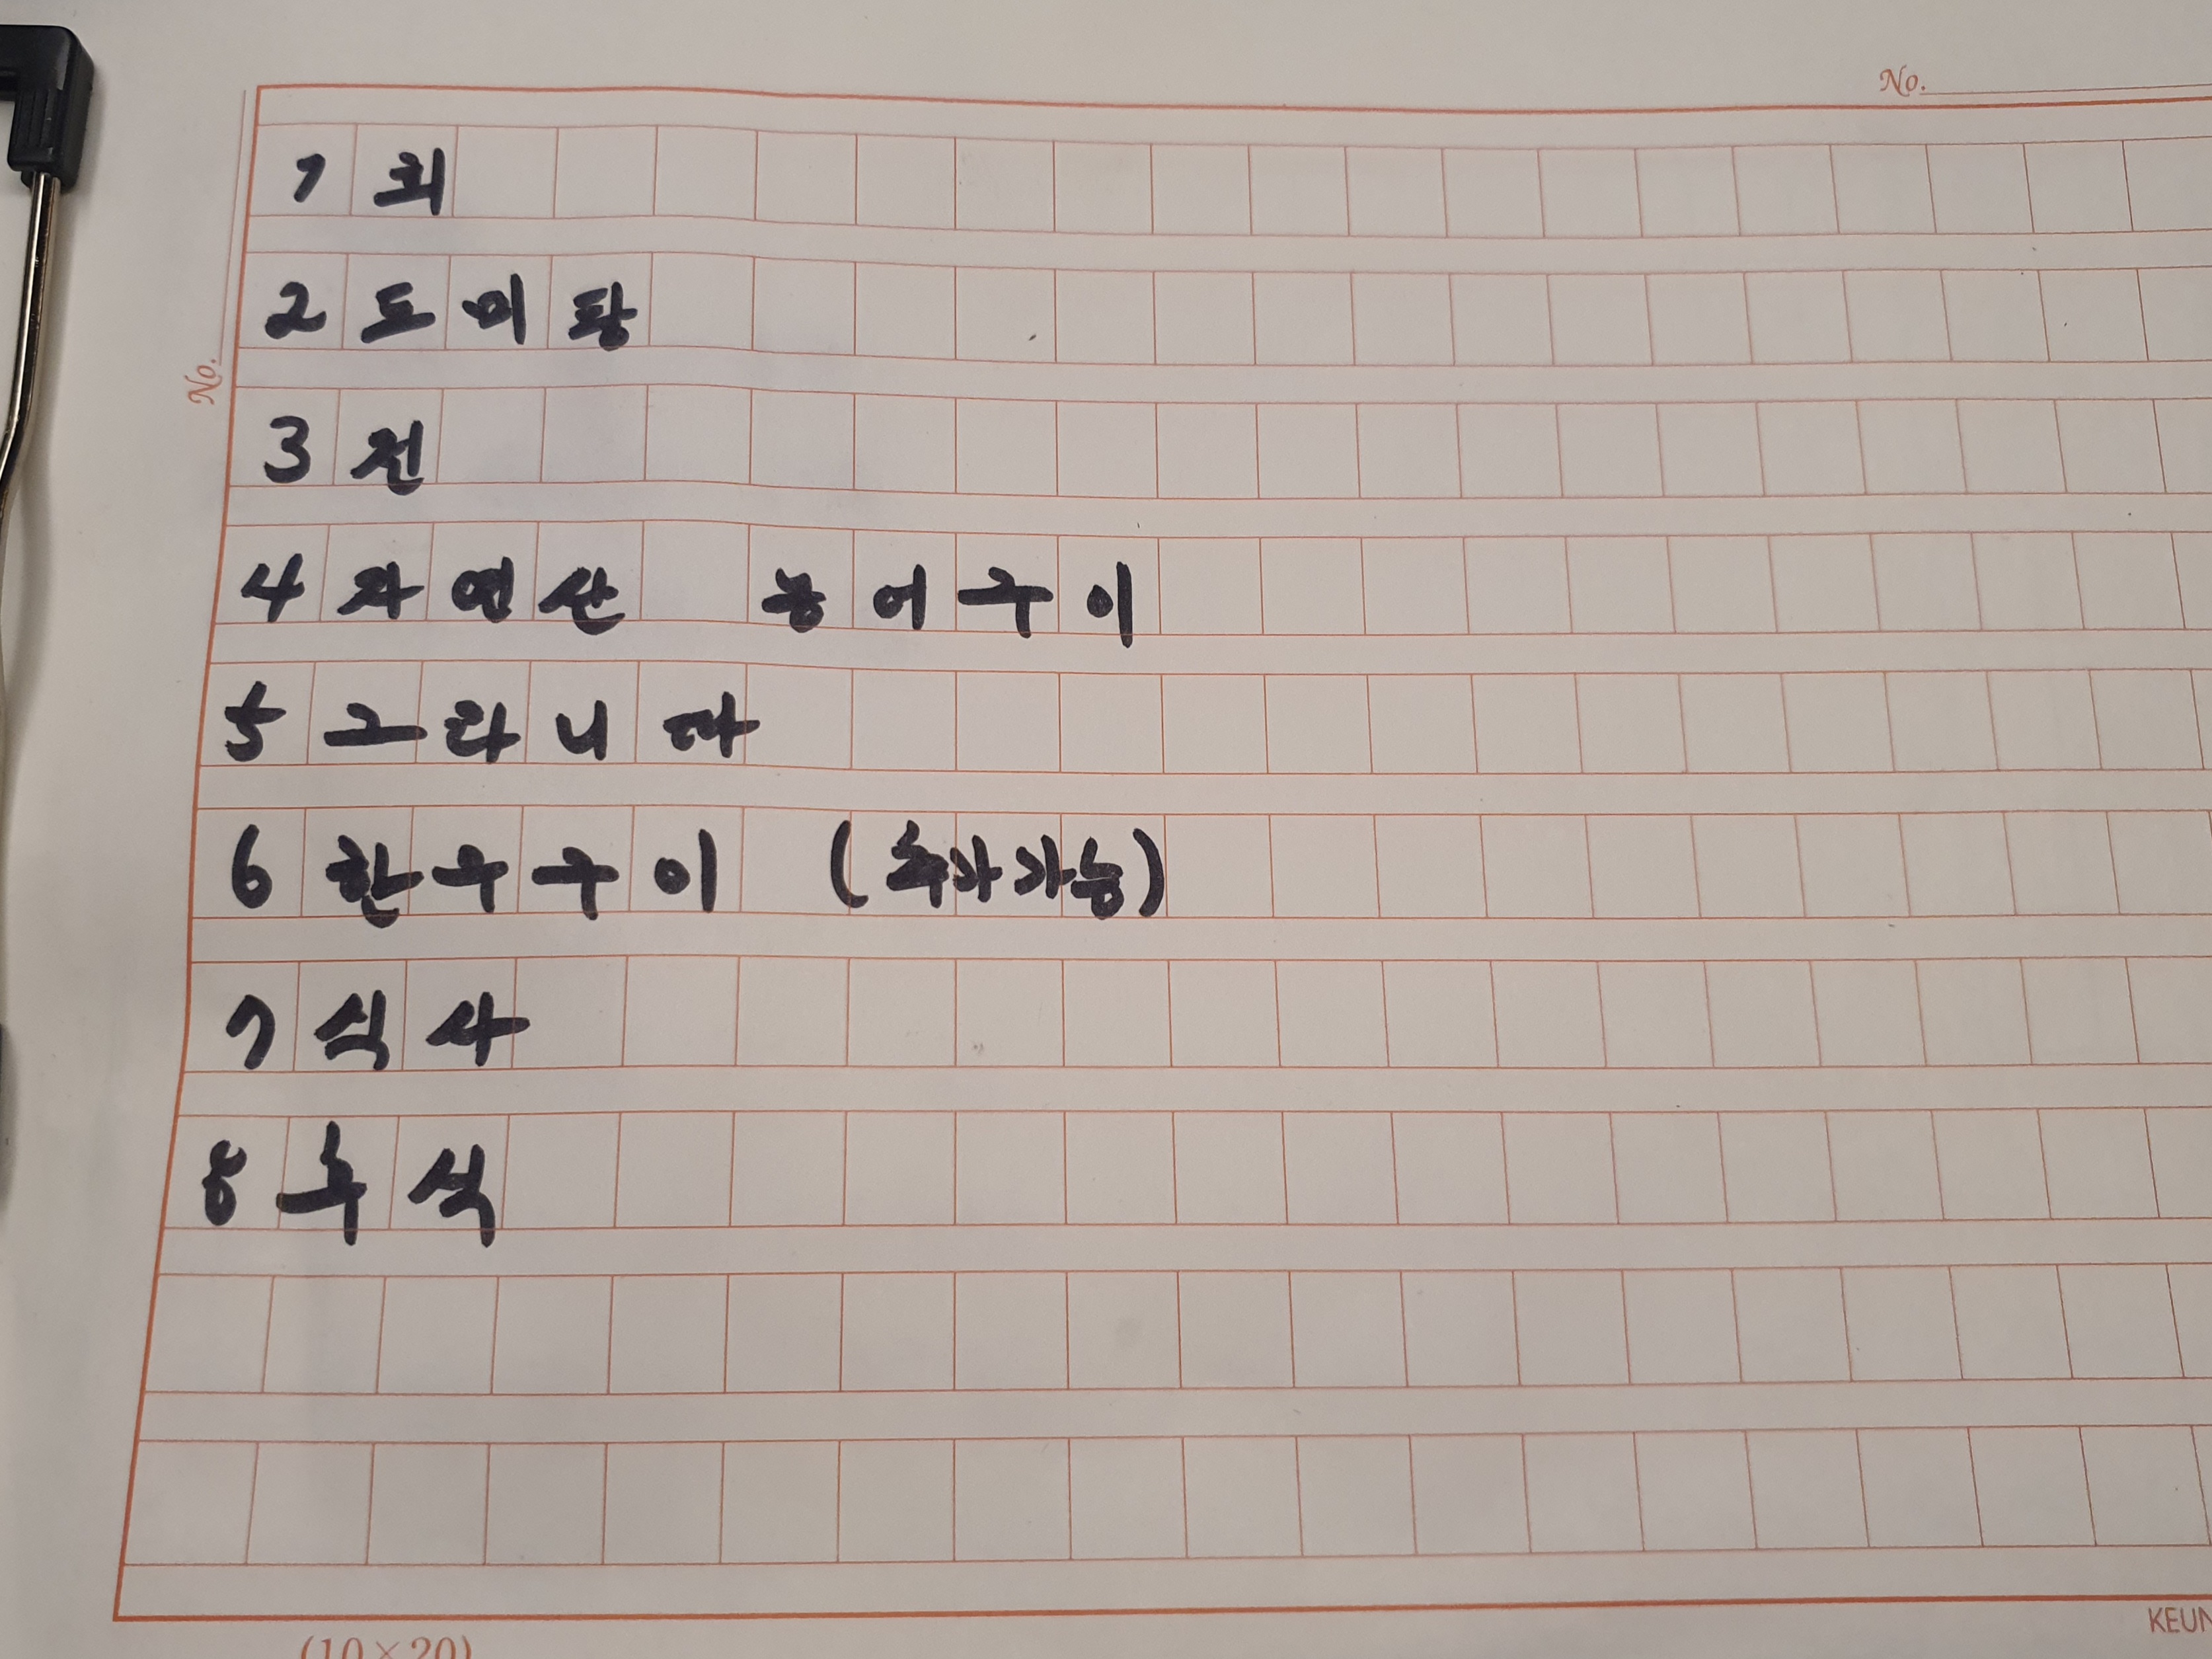 No.
1 회
2 도미탕
3 전
4 자연산 농어구이
5 그라니따
6 한우구이 (추가가능)
7 식사
8 후식
No.
(10×20)